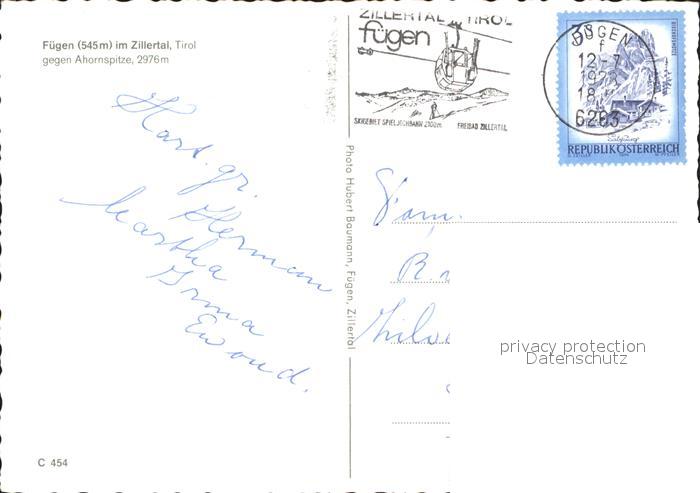 Fügen (545m) im Zillertal, Tirol
gegen Ahornspitze, 2976m
Hart. gr.
Herman
Martha
Irma
Ewoud.
C 454
Photo Hubert Baumann, Fügen, Zillertal
ZILLERTAL TIROL
fügen
SKIGEBIET SPIELJOCHBAHN 2100m FREIBAD ZILLERTAL
FÜGEN
f
12-7
18
6263
REPUBLIK ÖSTERREICH
Fam.
privacy protection
Datenschutz